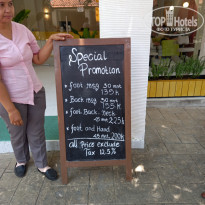 TOP HOTELS
Special
Promotion
* foot reflg 30 mnt
135k
* Back massg 30 mnt
135k
* foot. Back. Neck
45 mnt 225k
* foot and Hand
45 mnt 200k
all Price exclude
Tax 12.5%